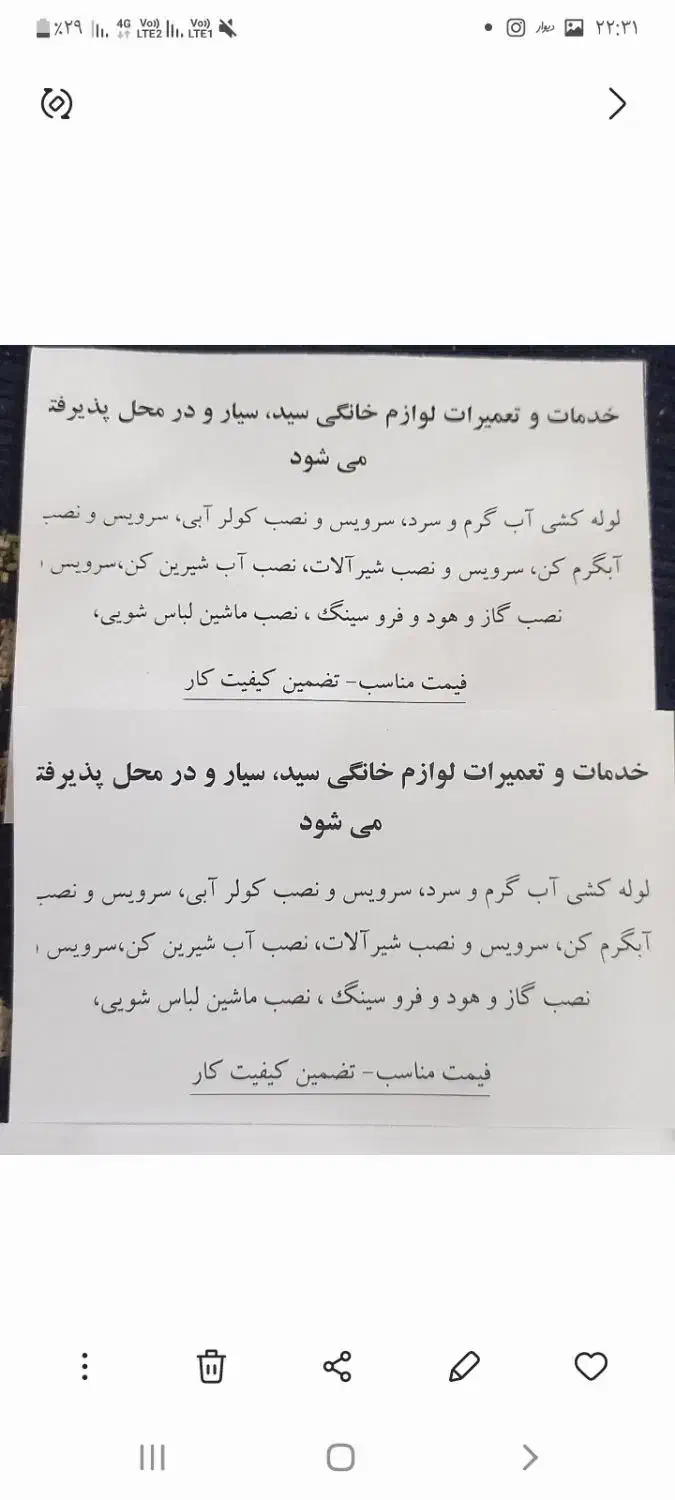 ٪۲۹ 4G Vo)) LTE2 Vo)) LTE1 دیوار ۲۲:۳۱
خدمات و تعمیرات لوازم خانگی سید، سیار و در محل پذیرفت
می شود
لوله کشی آب گرم و سرد، سرویس و نصب کولر آبی، سرویس و نصب
آبگرم کن، سرویس و نصب شیرآلات، نصب آب شیرین کن،سرویس
نصب گاز و هود و فرو سینگ ، نصب ماشین لباس شویی،
قیمت مناسب- تضمین کیفیت کار
خدمات و تعمیرات لوازم خانگی سید، سیار و در محل پذیرفت
می شود
لوله کشی آب گرم و سرد، سرویس و نصب کولر آبی، سرویس و نصب
آبگرم کن، سرویس و نصب شیرآلات، نصب آب شیرین کن،سرویس
نصب گاز و هود و فرو سینگ ، نصب ماشین لباس شویی،
قیمت مناسب- تضمین کیفیت کار